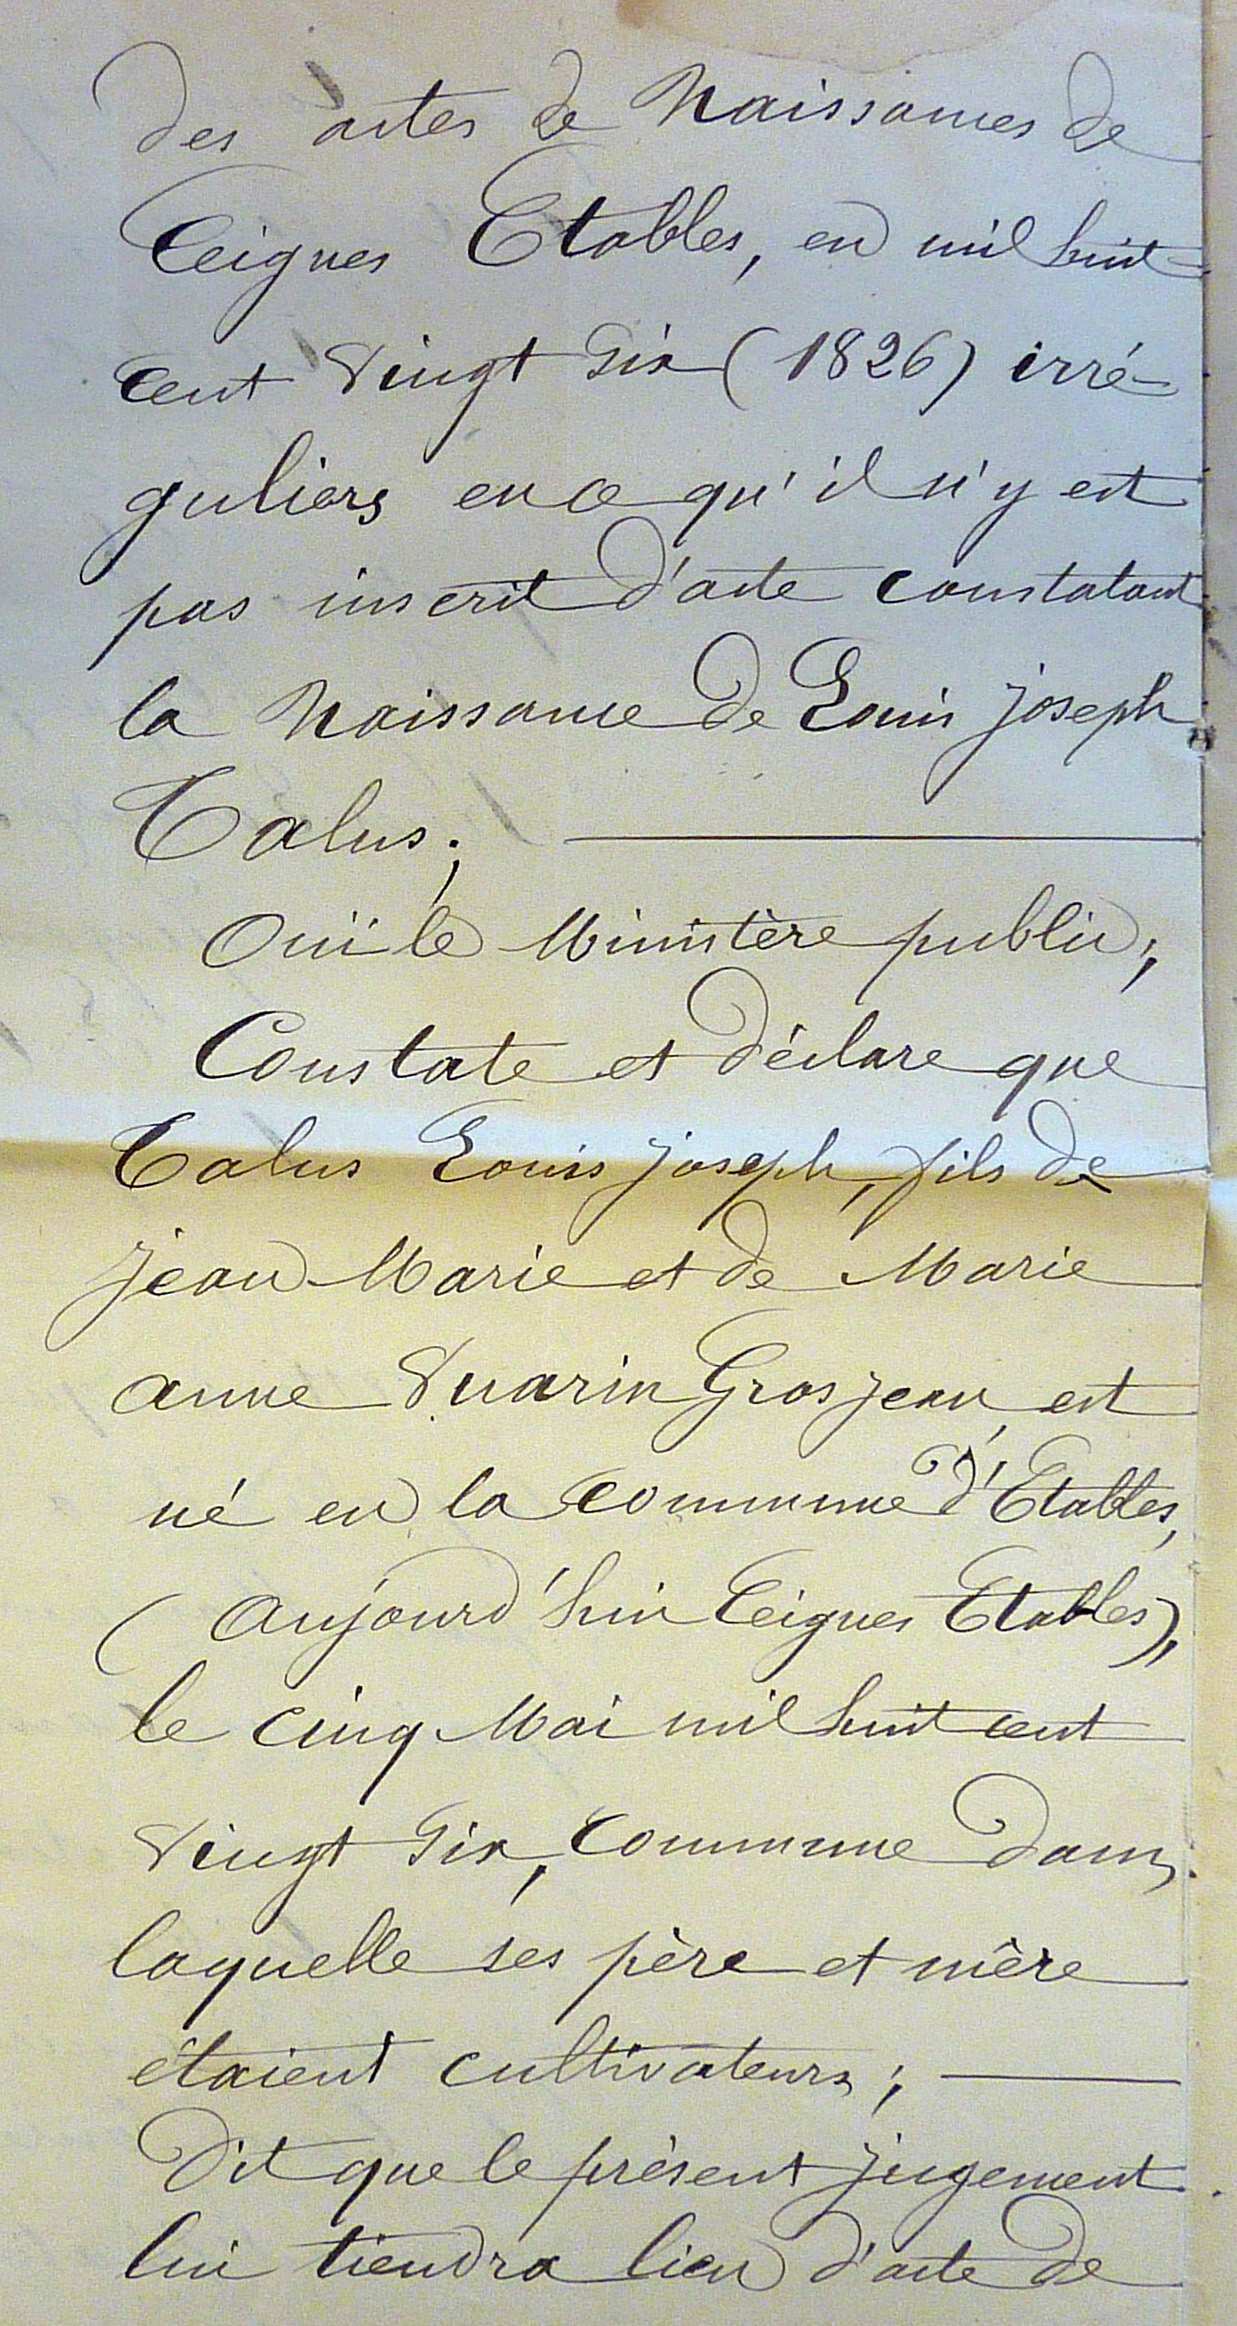 des actes de Naissances de
Ceignes Etables, en mil huit
cent vingt Six (1826) irré-
guliers en ce qu'il n'y est
pas inscrit d'acte constatant
la Naissance de Louis joseph
Calus;
Ouï le Ministère public;
Constate et déclare que
Calus Louis joseph, fils de
jean Marie et de Marie
anne Vuarin Grosjean, est
né en la commune d'Etables,
(aujourd'hui Ceignes Etables),
le cinq Mai mil huit cent
vingt Six, commune dans
laquelle ses père et mère
étaient cultivateurs;
Dit que le présent jugement
lui tiendra lieu d'acte de